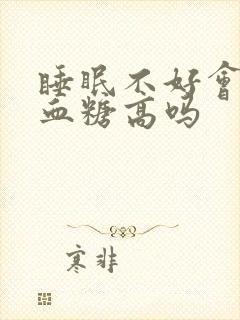 睡眠不好會
血糖高吗
寒非